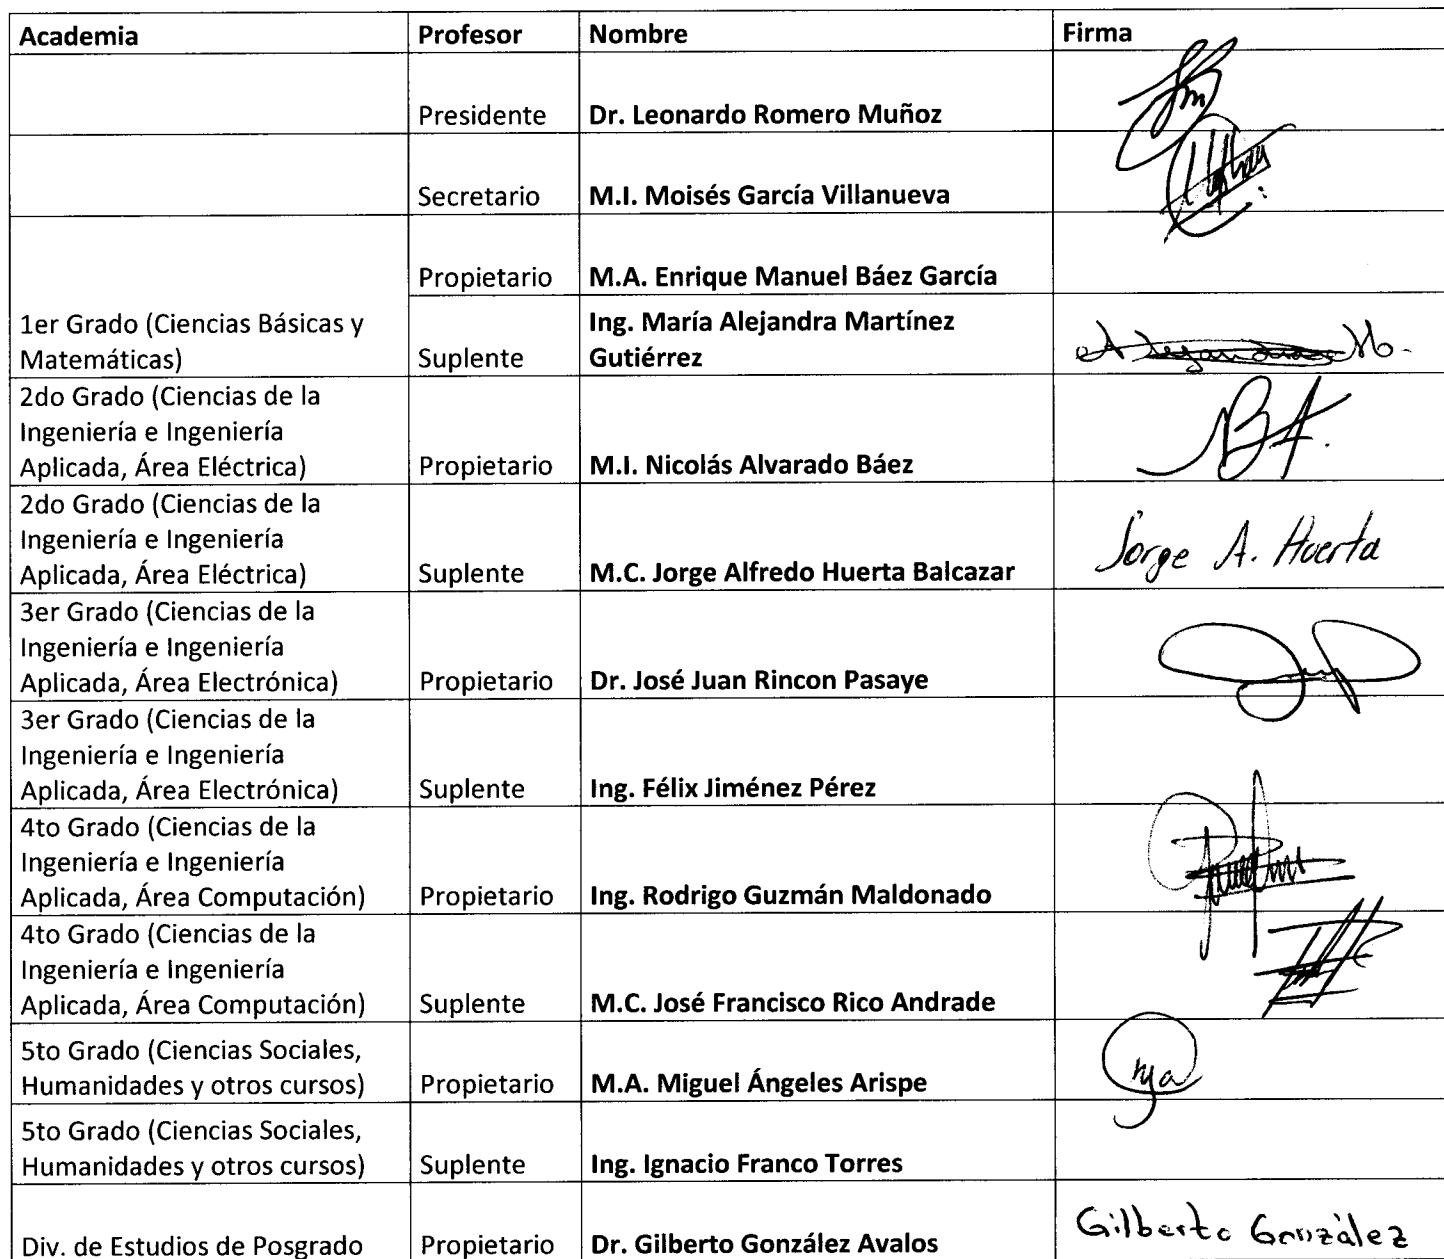 Academia Profesor Nombre Firma
Presidente Dr. Leonardo Romero Muñoz
Secretario M.I. Moisés García Villanueva
Propietario M.A. Enrique Manuel Báez García
1er Grado (Ciencias Básicas y
Matemáticas)
Suplente
Ing. María Alejandra Martínez
Gutiérrez
Alejandra M.
2do Grado (Ciencias de la
Ingeniería e Ingeniería
Aplicada, Área Eléctrica) Propietario M.I. Nicolás Alvarado Báez
2do Grado (Ciencias de la
Ingeniería e Ingeniería
Aplicada, Área Eléctrica) Suplente M.C. Jorge Alfredo Huerta Balcazar Jorge A. Huerta
3er Grado (Ciencias de la
Ingeniería e Ingeniería
Aplicada, Área Electrónica) Propietario Dr. José Juan Rincon Pasaye
3er Grado (Ciencias de la
Ingeniería e Ingeniería
Aplicada, Área Electrónica) Suplente Ing. Félix Jiménez Pérez
4to Grado (Ciencias de la
Ingeniería e Ingeniería
Aplicada, Área Computación) Propietario Ing. Rodrigo Guzmán Maldonado
4to Grado (Ciencias de la
Ingeniería e Ingeniería
Aplicada, Área Computación) Suplente M.C. José Francisco Rico Andrade
5to Grado (Ciencias Sociales,
Humanidades y otros cursos) Propietario M.A. Miguel Ángeles Arispe
5to Grado (Ciencias Sociales,
Humanidades y otros cursos) Suplente Ing. Ignacio Franco Torres
Div. de Estudios de Posgrado Propietario Dr. Gilberto González Avalos Gilberto González